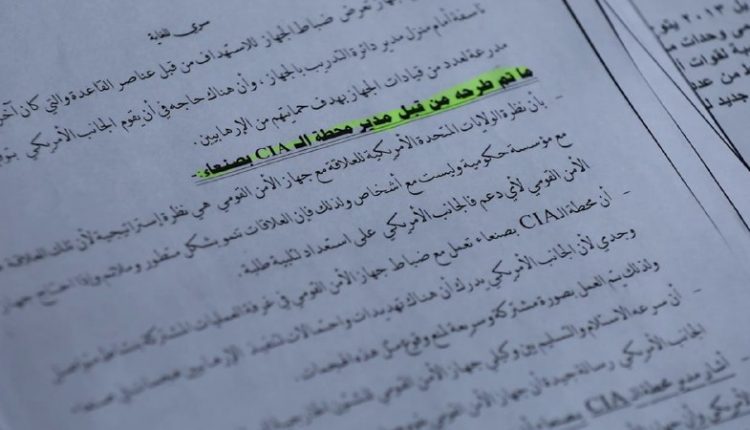 سري للغاية
جهاز تعرض ضباط الجهاز للاستهداف من قبل عناصر القاعدة والتي كان آخر
ناسفة أمام منزل مدير دائرة التدريب بالجهاز ، وأن هناك حاجه في أن يقوم الجانب الأمريكي بتو
مدرعة لعدد من قيادات الجهاز بهدف حمايتهم من الإرهابيين.
ما تم طرحه من قبل مدير محطة الـ CIA بصنعاء:-
- بأن نظرة الولايات المتحدة الأمريكية للعلاقة مع جهاز الأمن القومي هي نظرة إستراتيجية لأن تلك العلاقة
مع مؤسسة حكومية وليست مع أشخاص ولذلك فإن العلاقات تنمو بشكل متطور وملائم وإذا احتاج جهاز
الأمن القومي لأي دعم فالجانب الأمريكي على استعداد لتلبية طلبة.
- أن محطة الـ CIA بصنعاء تعمل مع ضباط جهاز الأمن القومي في غرفة العمليات المشتركة بنشاط متواصل
وجدي لأن الجانب الأمريكي يدرك أن هناك تهديدات واحتمالات لتنفيذ الإرهابيين
ولذلك يتم العمل بصورة مشتركة وسرعة لمنع وقوع مثل هذه الهجمات.
- أن سرعه الاستلام والتسليم بين وكيلي جهاز الأمن القومي لشئون
الجانب الأمريكي رسالة جيدة أن جهاز الأمن القومي
- أشار مدير محطة الـ CIA بصنعاء
ل ٢٠١٣ بقو
وحدات
لقوات
من عد
جديد